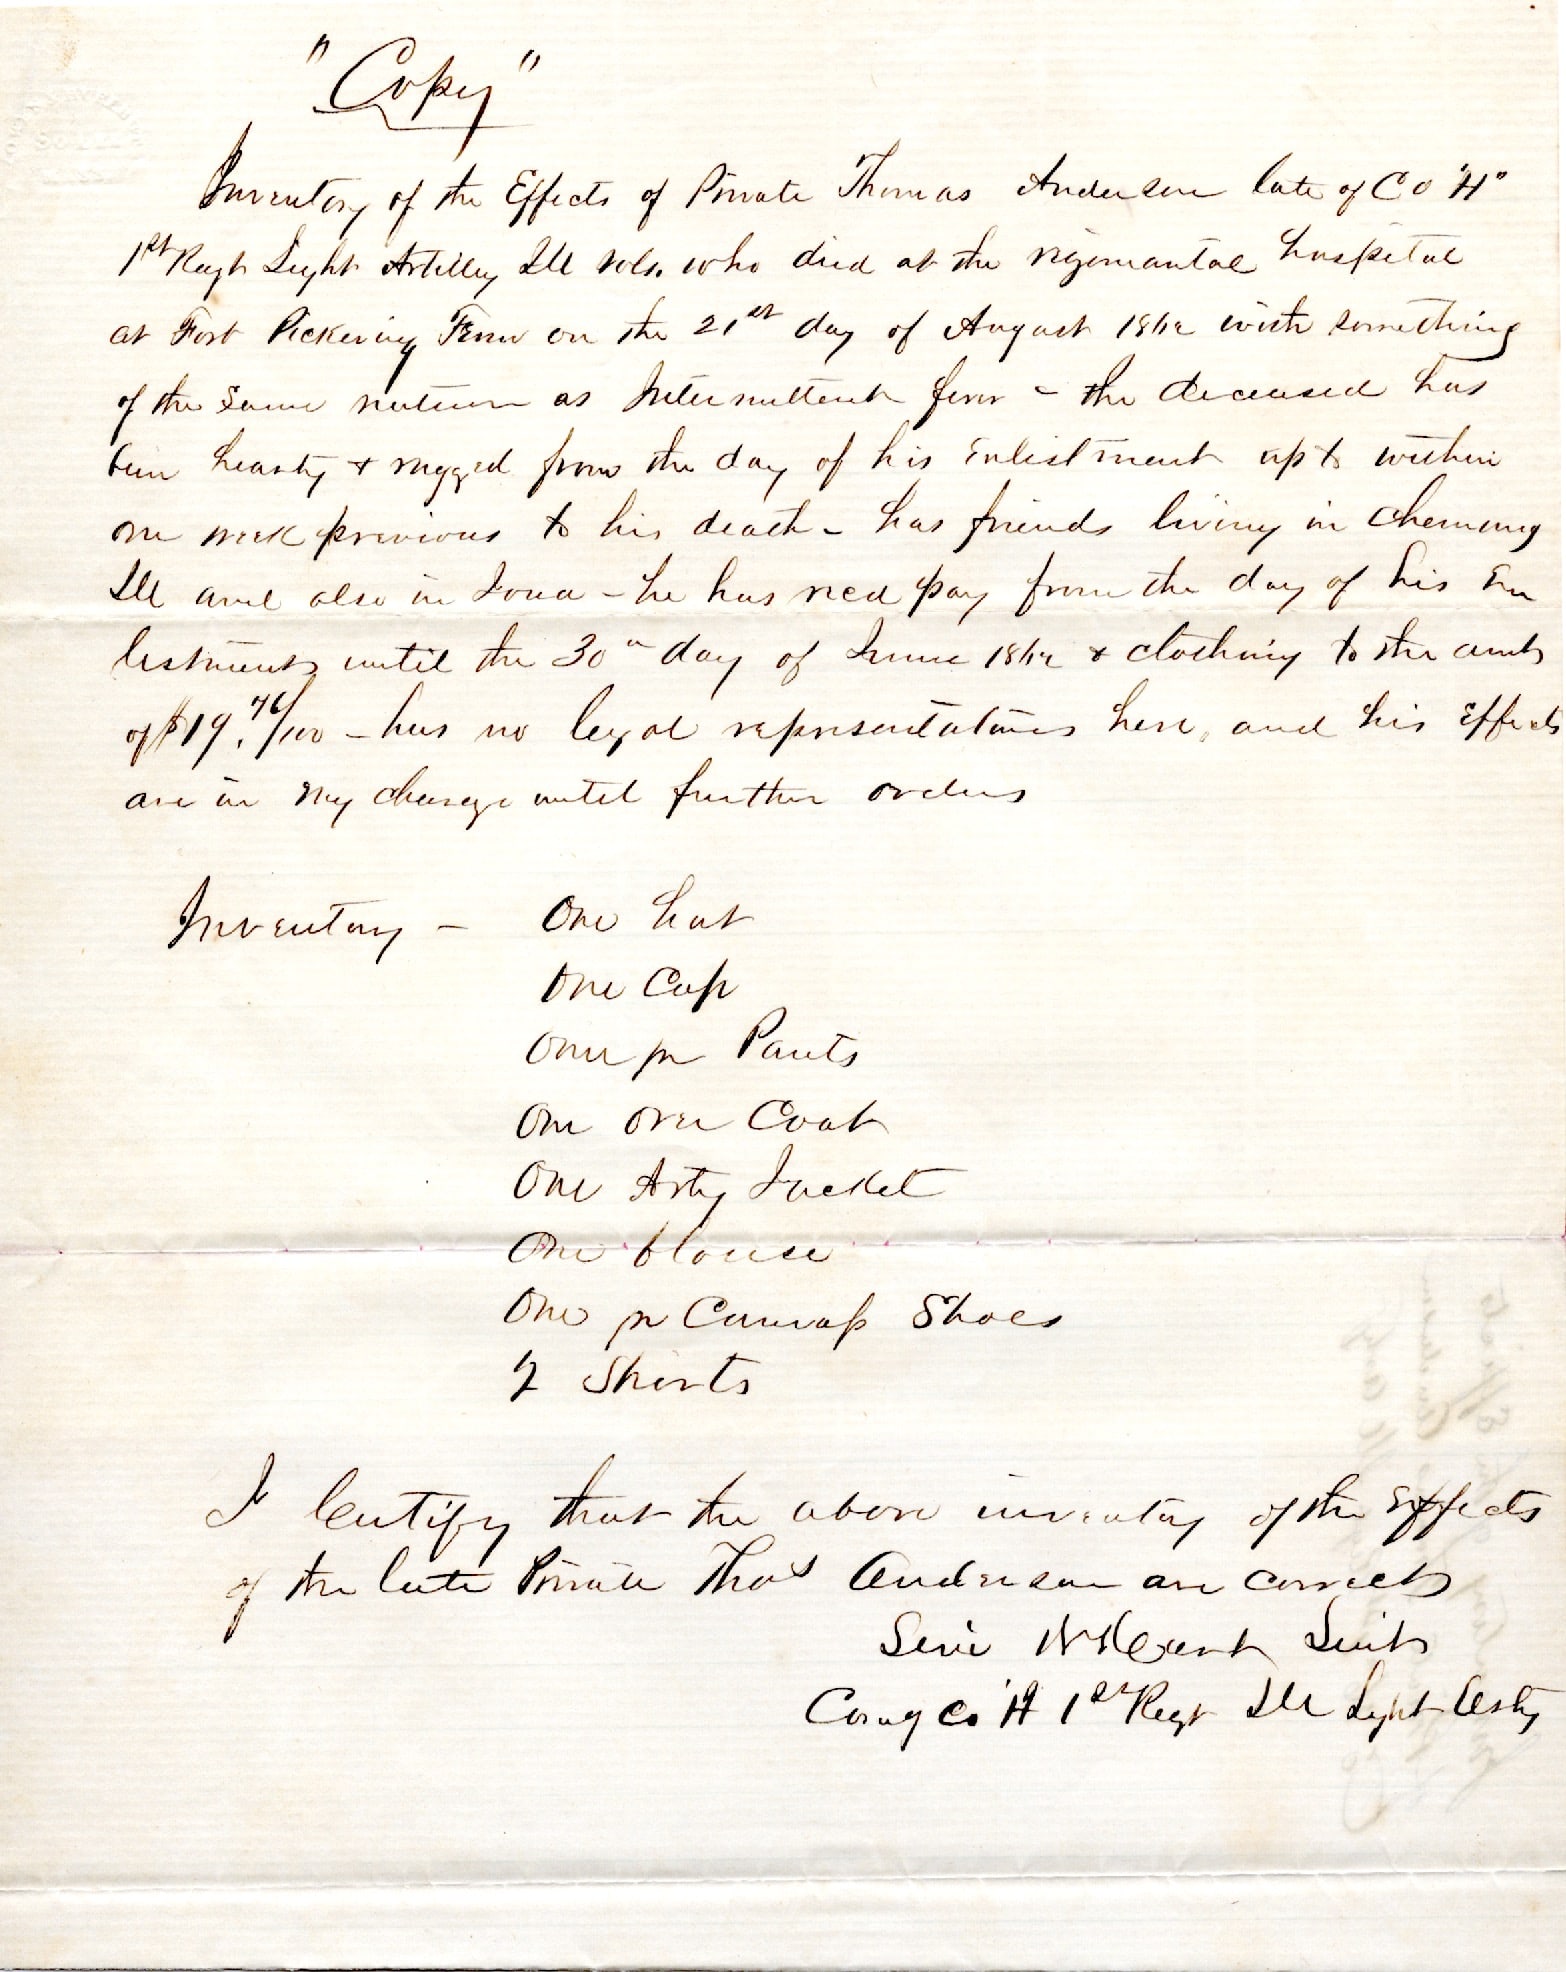 "Copy"
Inventory of the Effects of Private Thomas Anderson late of Co "H"
1st Regt Light Artillery Ill Vols. who died at the regimantal hospital
at Fort Pickering Tenn on the 21st day of August 1862 with something
of the same nature as Intermittent fever - the deceased has
been hearty & rugged from the day of his Enlistment up to within
one week previous to his death - has friends living in Chemung
Ill and also in Iowa - he has recd pay from the day of his En
listment until the 30th day of June 1862 & clothing to the amt
of $19.76/100 - has no legal representatives here, and his Effects
are in my charge until further orders
Inventory - One hat
One Cap
One pr Pants
One over Coat
One Arty Jacket
One blouse
One pr Canvass Shoes
2 Shirts
I Certify that the above inventory of the Effects
of the late Private Thos Anderson are correct
Levi W Hart Lieut
Comg Co "H" 1st Regt Ill Light Arty